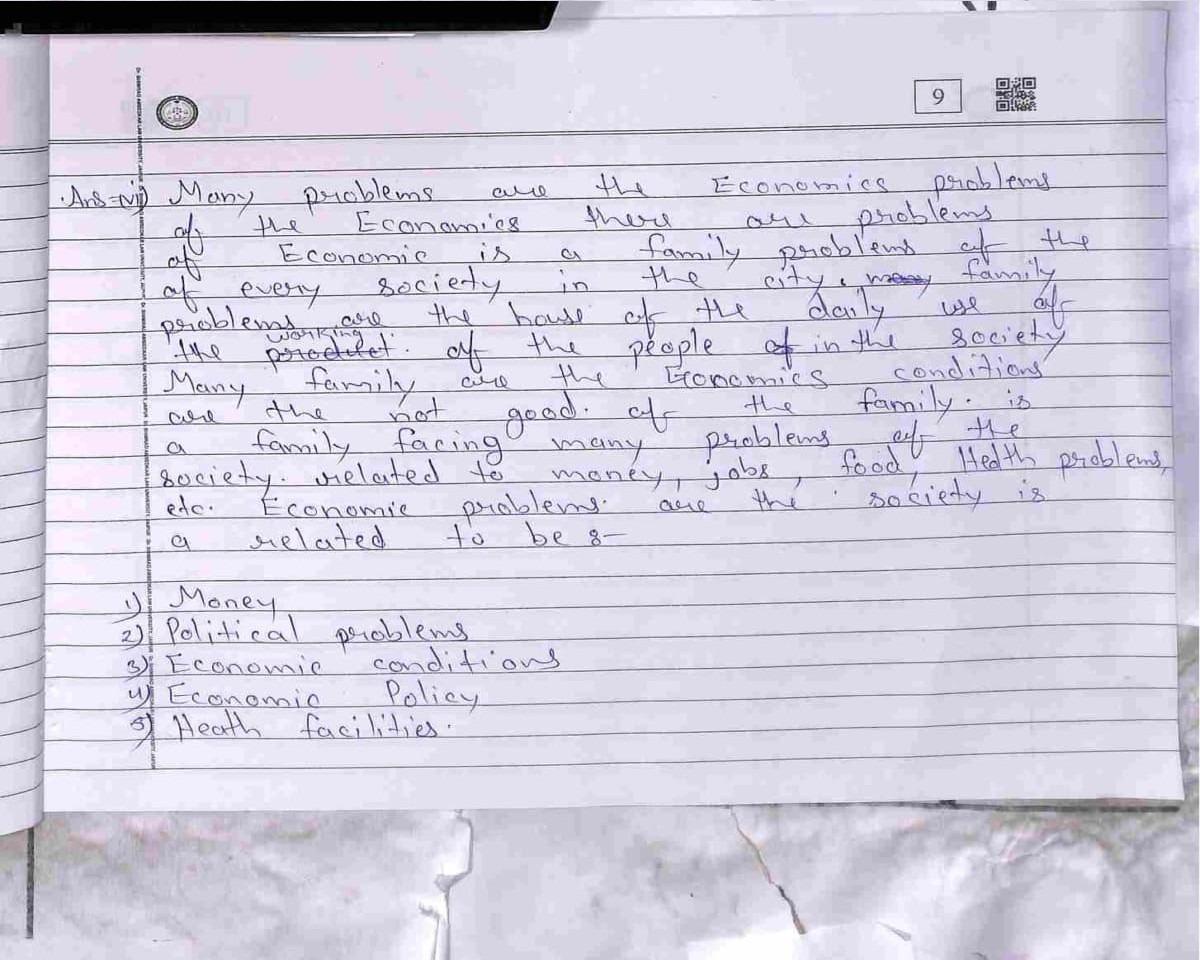 9
Ans=(vi) Many problems are the Economics problems
of the Economics there are problems
of Economic is a family problems of the
of every society in the city. many family
problems are the house of the daily use of
working
the product. of the people of in the society
Many family are the Economics conditions
are the not good. of the family. is
a family facing many problems of the
society. related to money, jobs, food, Heath problems,
etc. Economic problems. are the society is
a related to be :-
1) Money
2) Political problems
3) Economic conditions
4) Economic Policy
5) Heath facilities.